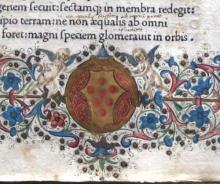 geriem secuit: sectamq; in membra redegit:
ipio terram: ne non aequalis ab omni
foret: magni speciem glomerauit in orbis.